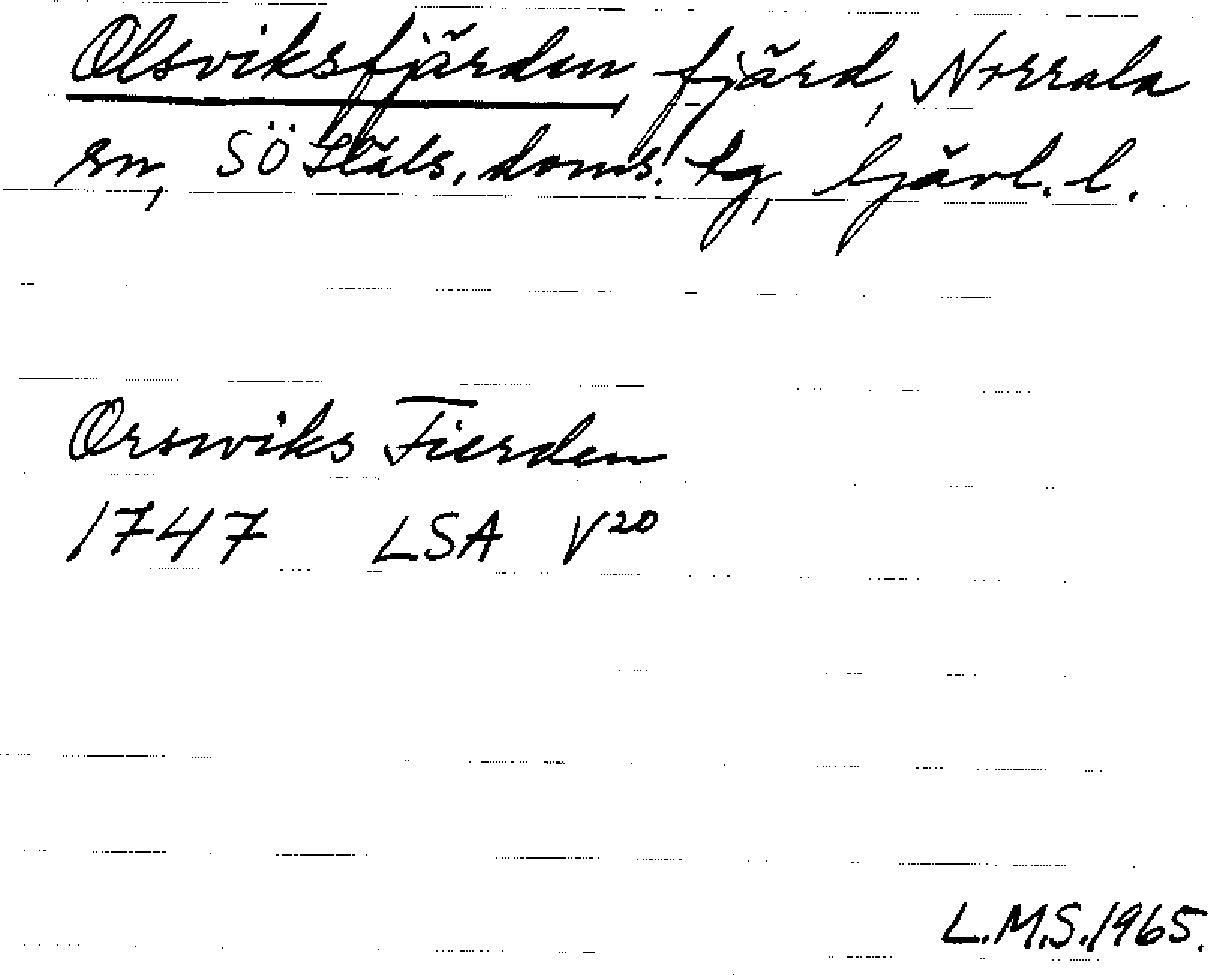 Olsviksfjärden fjärd, Norrala
sn, SÖ Häls. doms. tg, Gävl. l.
Orswiks Fierden
1747 LSA V20
L.M.S. 1965.